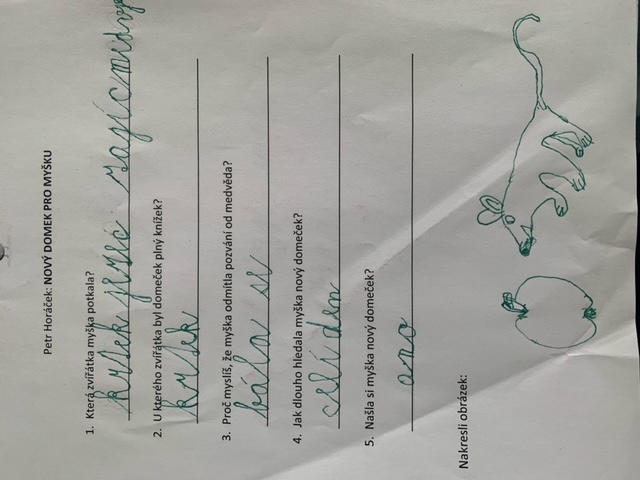 Petr Horáček: NOVÝ DOMEK PRO MYŠKU
1. Která zvířátka myška potkala?
krtek ježek zajíc medvěd
2. U kterého zvířátka byl domeček plný knížek?
krtek
3. Proč myslíš, že myška odmítla pozvání od medvěda?
bála se
4. Jak dlouho hledala myška nový domeček?
celí den
5. Našla si myška nový domeček?
ano
Nakresli obrázek: